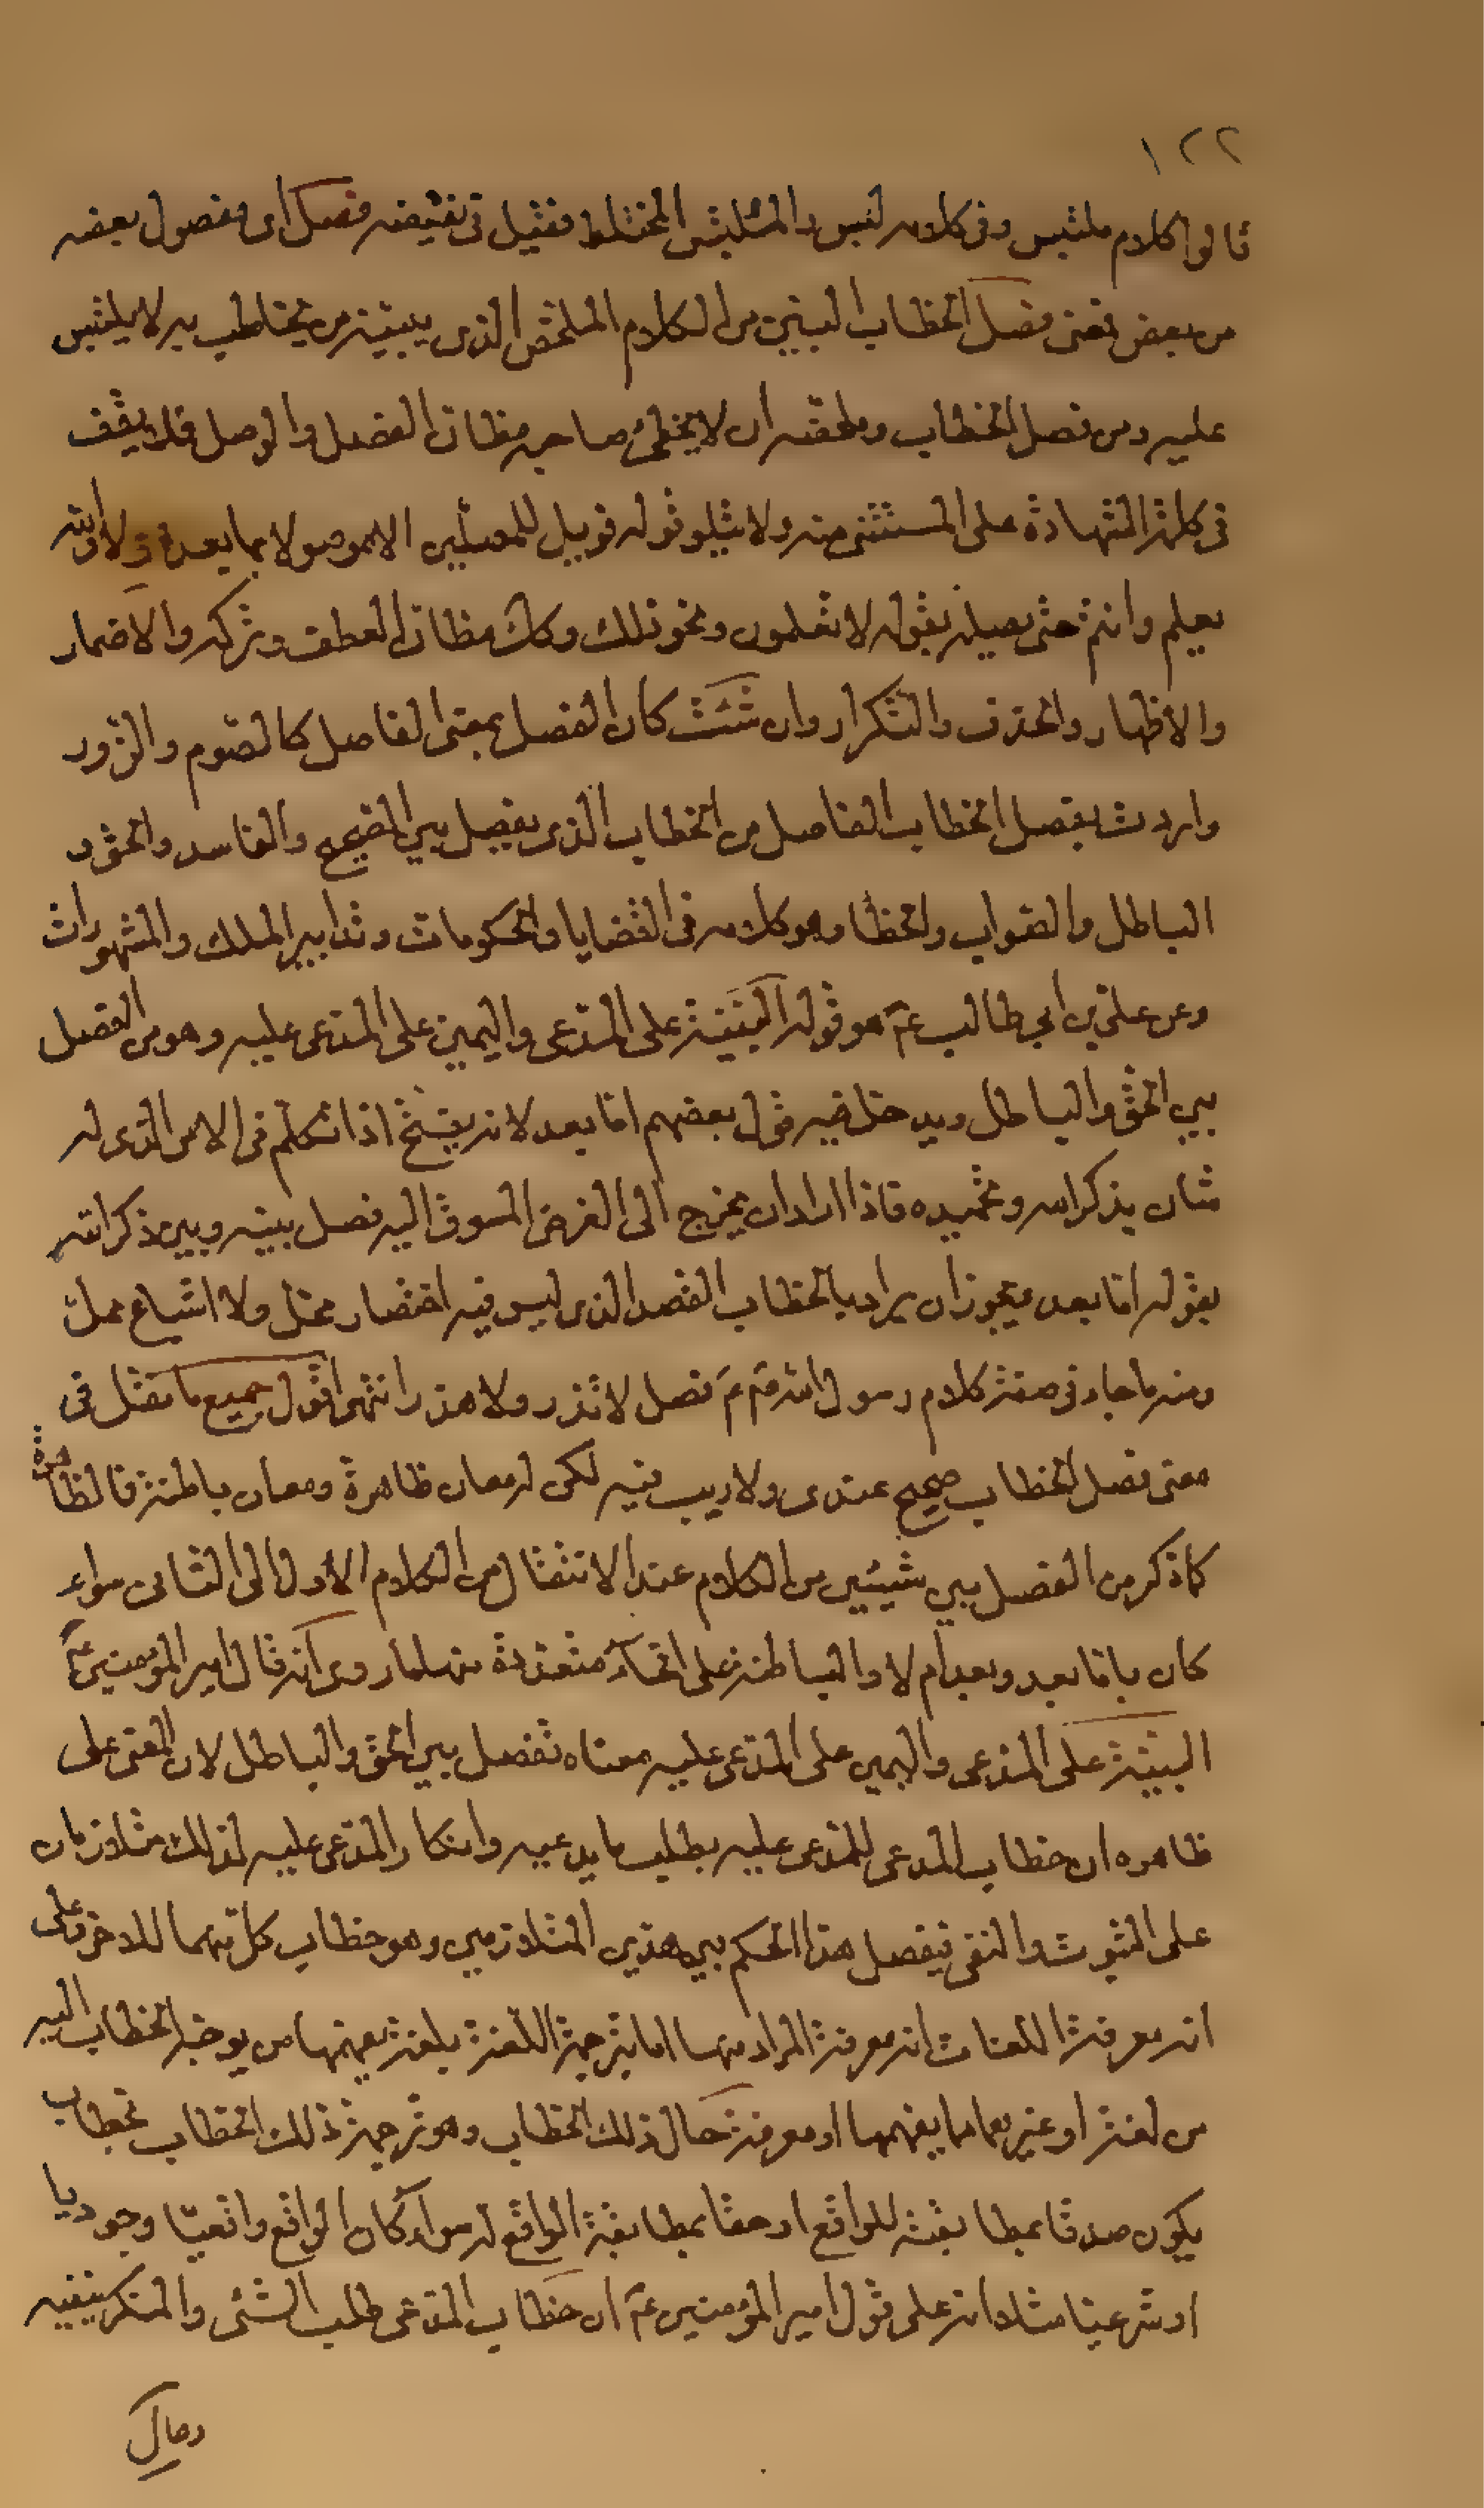 ١٢٢
قالوا كلام ملتبس وفى كلامه لبس والملتبس المختلط فقيل فى نقيضه فصل اى مفصول بعضه
من بعض فمعنى فصل الخطاب البين من الكلام الملخص الذى يبينه من يخاطب به لا يلتبس
عليه ومن فصل الخطاب وملخصه ان لا يخطئ صاحبه مظان الفصل والوصل فلا يقف
فى كلمة الشهادة على المستثنى منه ولا يتلو قوله فويل للمصلين الا موصولا بما بعده ولا والله
يعلم وانتم حتى يصله بقوله لا تعلمون ونحو ذلك وكك مظان العطف وتركه والاضمار
والاظهار والحذف والتكرار وان شئت كان الفصل بمعنى الفاصل كالصوم والزور
واردت بفصل الخطاب الفاصل من الخطاب الذى يفصل بين الصحيح والفاسد والحق و
الباطل والصواب والخطأ وهو كلامه فى القضايا والحكومات وتدابير الملك والمشورات
وعن على بن ابى طالب عم هو قوله البينة على المدعى واليمين على المدعى عليه وهو من الفصل
بين الحق والباطل ويدخل فيه قول بعضهم اما بعد لانه يفتح اذا تكلم فى الامر الذى له
شان بذكر الله وتحميده فاذا اراد ان يخرج الى الغرض المسوق اليه فصل بينه وبين ذكر الله
بقوله اما بعد ويجوز ان يراد بالخطاب القصد الذى ليس فيه اختصار مخل ولا اشباع ممل
ومنه ما جاء فى صفة كلام رسول الله فصل لا نذر ولا هذر انتهى اقول جميع ما فى
معنى فصل الخطاب صحيح عندى ولا ريب فيه لكن له معان ظاهرة ومعان باطنة فالظاهرة
كما ذكر من الفصل بين شيئين من الكلام عند الانتقال من الكلام الاول الى الثانى سواء
كان باما بعد وبعد ام لا والباطنة على انحاء متعددة منها ما روى انه قال امير المؤمنين عم
البينة على المدعى واليمين على المدعى عليه معناه تفصل بين الحق والباطل لان المعنى على
ظاهره ان خطاب المدعى للمدعى عليه بطلب ما يدعيه وانكار المدعى عليه لذلك متلازمان
على الثبوت والنفى فيفصل هذا الحكم بين هذين المتلازمين وهو خطاب كل منهما للاخر وعلى
انه معرفة اللغات انه معرفة المراد منها اما بترجمة اللغة بلغة يفهمها من يوجه الخطاب اليه
من لغته او غيرها مما يفهمها او معرفة حال ذلك الخطاب وهو ترجمة ذلك الخطاب بخطاب
يكون صدقا بمطابقته للواقع او حقا بمطابقة الواقع له سواء كان الواقع واقعيا وجوديا
او شرعيا مثلا انه على قول امير المؤمنين عم ان خطاب المدعى طلب الشئ والمنكر ينفيه